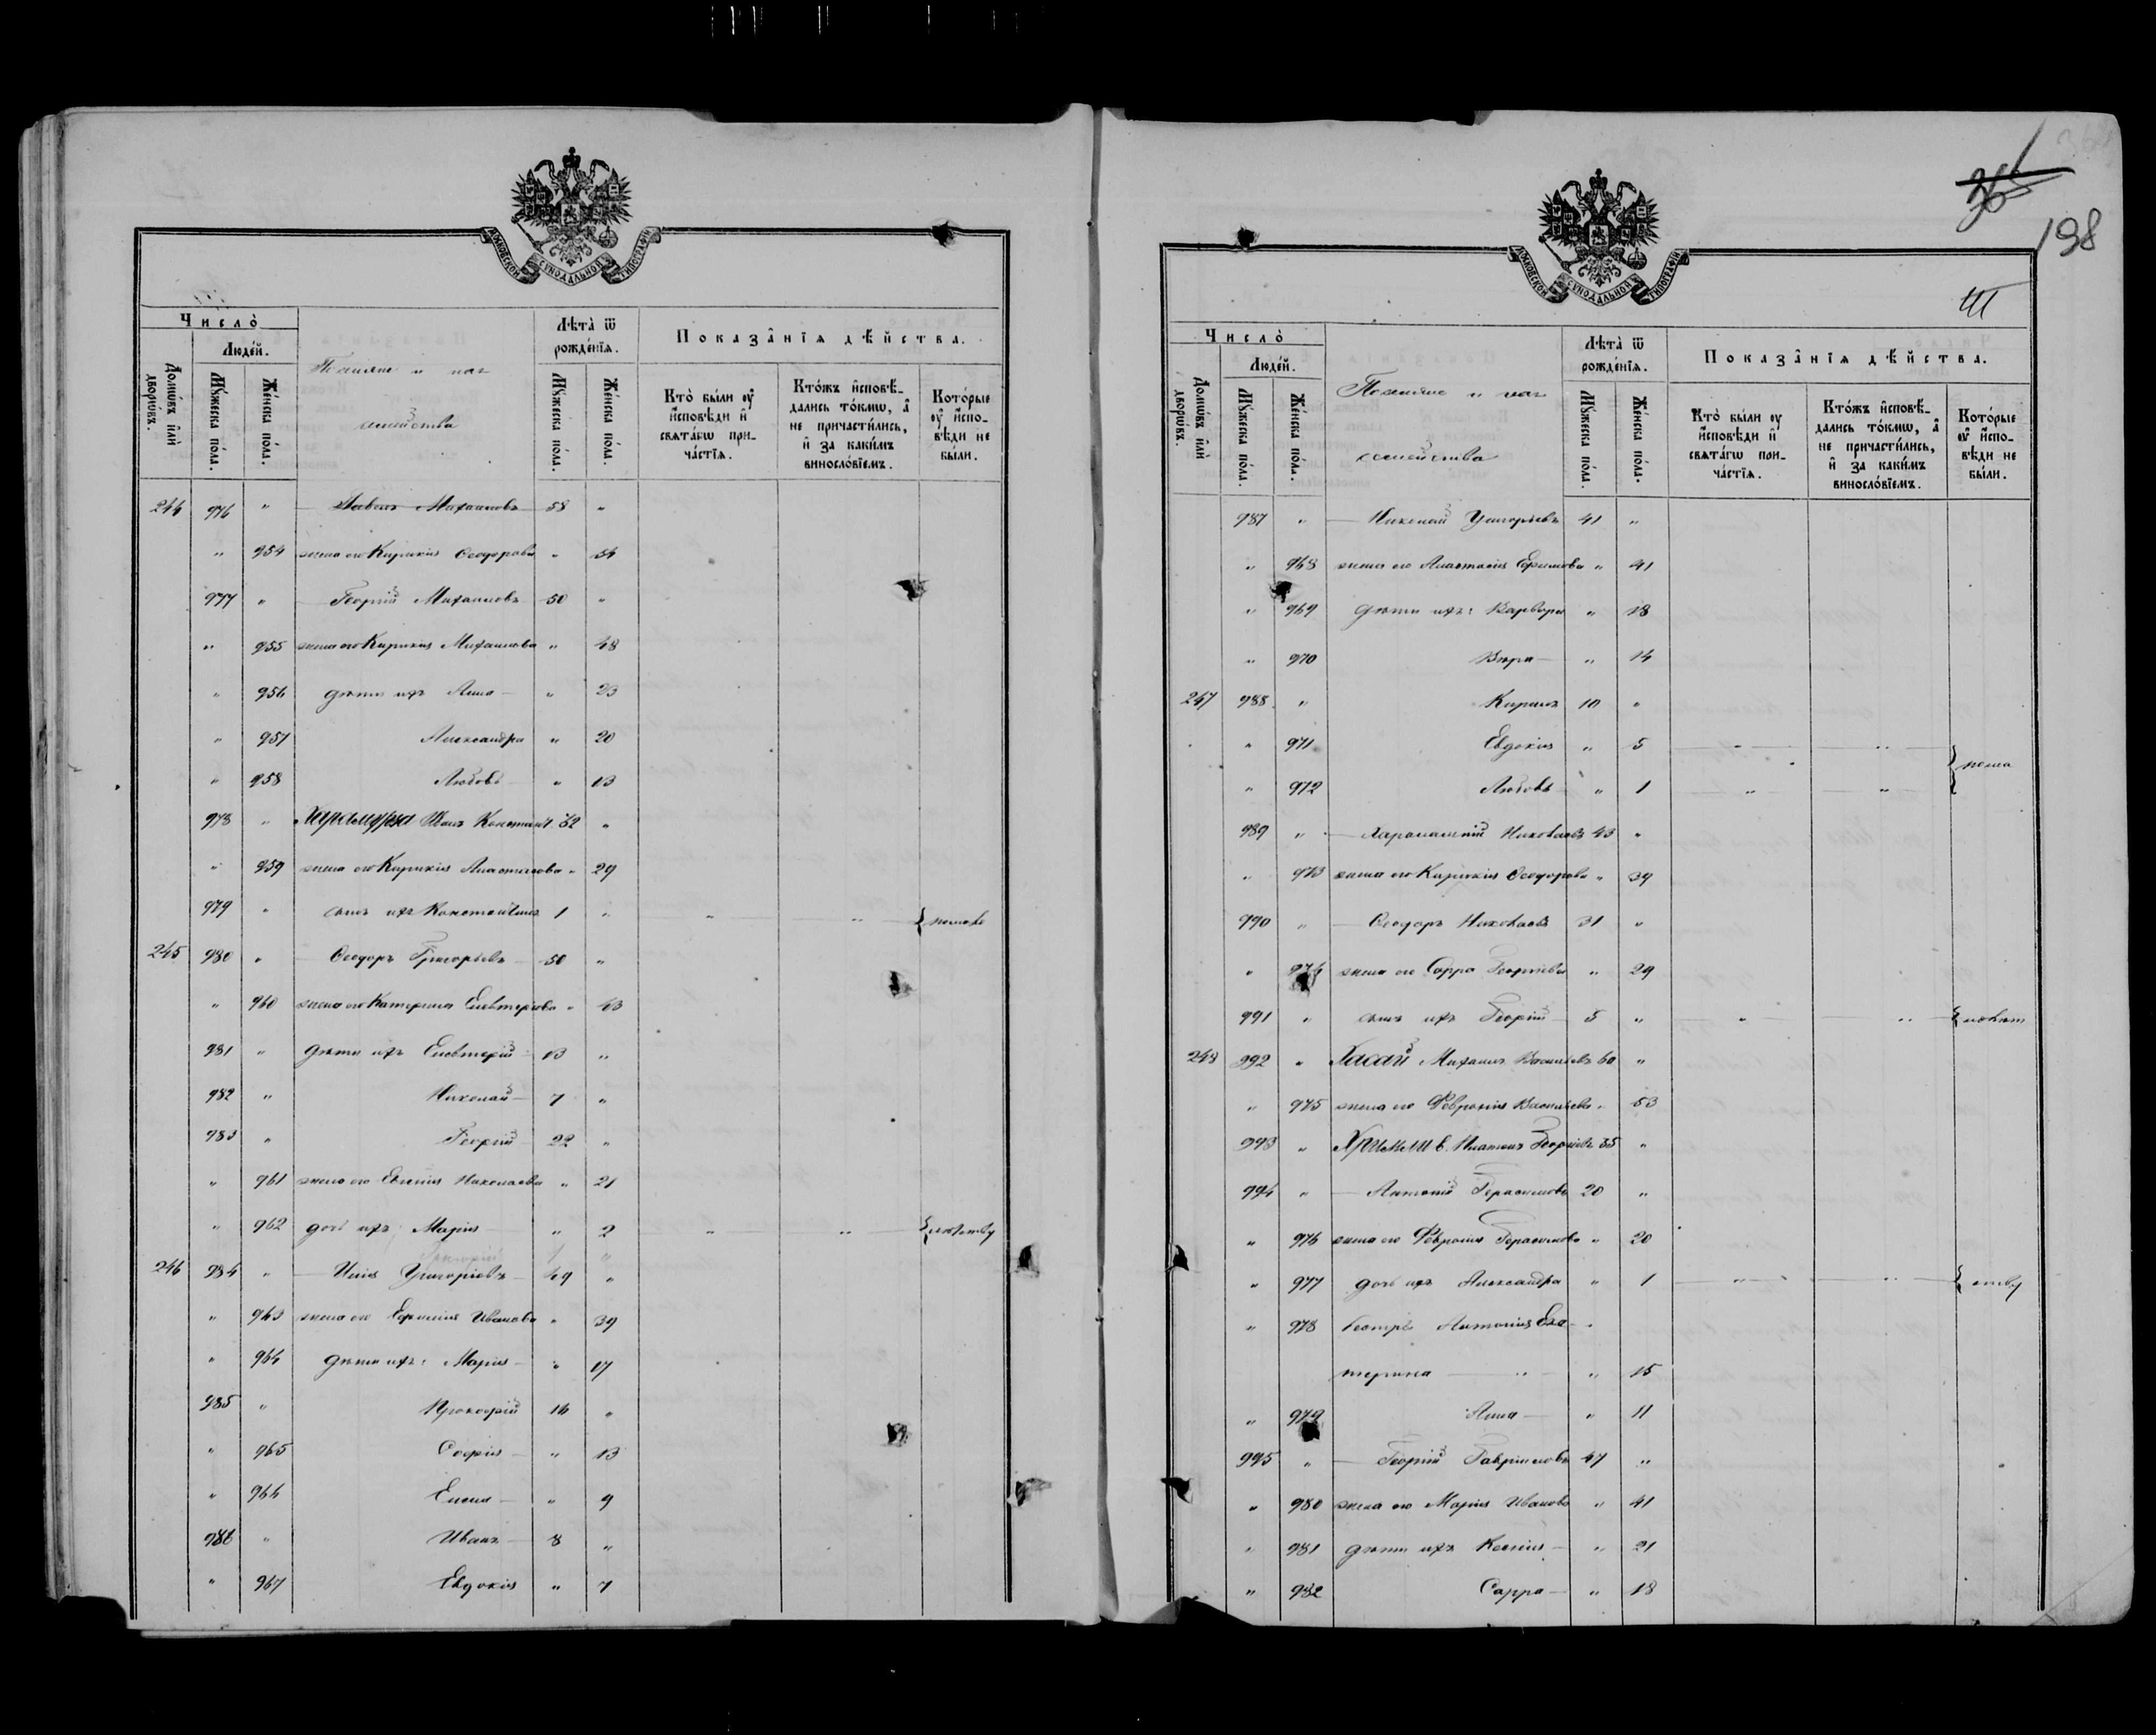 МОСКОВСКОЙ СУНОДАЛЬНОЙ ТИПОГРАФІИ
Число̀
Домѡвъ и҆лѝ дворѡвъ.
Люде́й.
Мꙋ́жеска по́ла.
Же́нска по́ла.
Поселяне и ихъ
семейства
Лѣ́та ѿ рожде́нїѧ.
Мꙋ́жеска по́ла.
Же́нска по́ла.
Показа̑нїѧ дѣ́йства.
Кто̀ бы́ли ᲂу҆ и҆сповѣ́ди и҆ свѧта́гѡ при- ча́стїѧ.
Кто́жъ и҆сповѣ́- дались то́кмѡ, а҆ не причасти́лись, и҆ за каки́мъ винносло́вїемъ.
Кото́рые ᲂу҆ и҆спо- вѣ́ди не бы́ли.
244 976 " Павелъ Михаиловъ 58 "
" 954 жена его Кирикія Ѳеодорова " 54
977 " Георгій Михаиловъ 50 "
" 955 жена его Кирикія Михаилова " 48
" 956 дѣти ихъ Анна " 23
" 957 Александра " 20
" 958 Любовь " 13
978 " Иванъ Констант. 32 "
" 959 жена его Кирикія " 29
979 " сынъ ихъ Константинъ 1 " " "
245 980 " Ѳеодоръ Григорьевъ 50 "
" 960 жена его Катерина Елевтеріова " 43
981 " дѣти ихъ Елевтерій 13 "
982 " Николай 7 "
983 " Георгій 22 "
" 961 жена его Евгенія Николаева " 21
" 962 дочь ихъ Марія " 2 " "
246 984 " Илія Григоріевъ 49 "
" 963 жена его Ефимія Иванова " 39
" 964 дѣти ихъ: Марія " 17
985 " Прокофій 16 "
" 965 Софія " 13
" 966 Елена " 9
986 " Иванъ 8 "
" 967 Евдокія " 7
198
МОСКОВСКОЙ СУНОДАЛЬНОЙ ТИПОГРАФІИ
Число̀
Домѡвъ и҆лѝ дворѡвъ.
Люде́й.
Мꙋ́жеска по́ла.
Же́нска по́ла.
Поселяне и ихъ
семейства
Лѣ́та ѿ рожде́нїѧ.
Мꙋ́жеска по́ла.
Же́нска по́ла.
Показа̑нїѧ дѣ́йства.
Кто̀ бы́ли ᲂу҆ и҆сповѣ́ди и҆ свѧта́гѡ при- ча́стїѧ.
Кто́жъ и҆сповѣ́- дались то́кмѡ, а҆ не причасти́лись, и҆ за каки́мъ винносло́вїемъ.
Кото́рые ᲂу҆ и҆спо- вѣ́ди не бы́ли.
987 " Николай Григорьевъ 41 "
" 968 жена его Анастасія Ефимова " 41
" 969 дѣти ихъ: Варвара " 18
" 970 Вѣра " 14
247 988 " Кирилъ 10 "
" 971 Евдокія " 5 " "
" 972 Любовь " 1 " "
989 " Харлампій Николаевъ 43 "
" 973 жена его Кирикія Ѳеодорова " 39
990 " Ѳеодоръ Николаевъ 31 "
" 974 жена его Сарра Георгіева " 29
991 " сынъ ихъ Георгій 5 " " "
248 992 " Хасай Михаилъ Васильевъ 60 "
" 975 жена его Февронія Васильева " 53
993 " Платонъ Георгіевъ 35 "
994 " Антоній Герасимовъ 20 "
" 976 жена его Февронія Герасимова " 20
" 977 дочь ихъ Александра " 1 " "
" 978 сестра Антонія Ека-
терина " " 15
" 979 Анна " 11
995 " Георгій Гавриловъ 47 "
" 980 жена его Марія Иванова " 41
" 981 дѣти ихъ Ксенія " 21
" 982 Сарра " 18